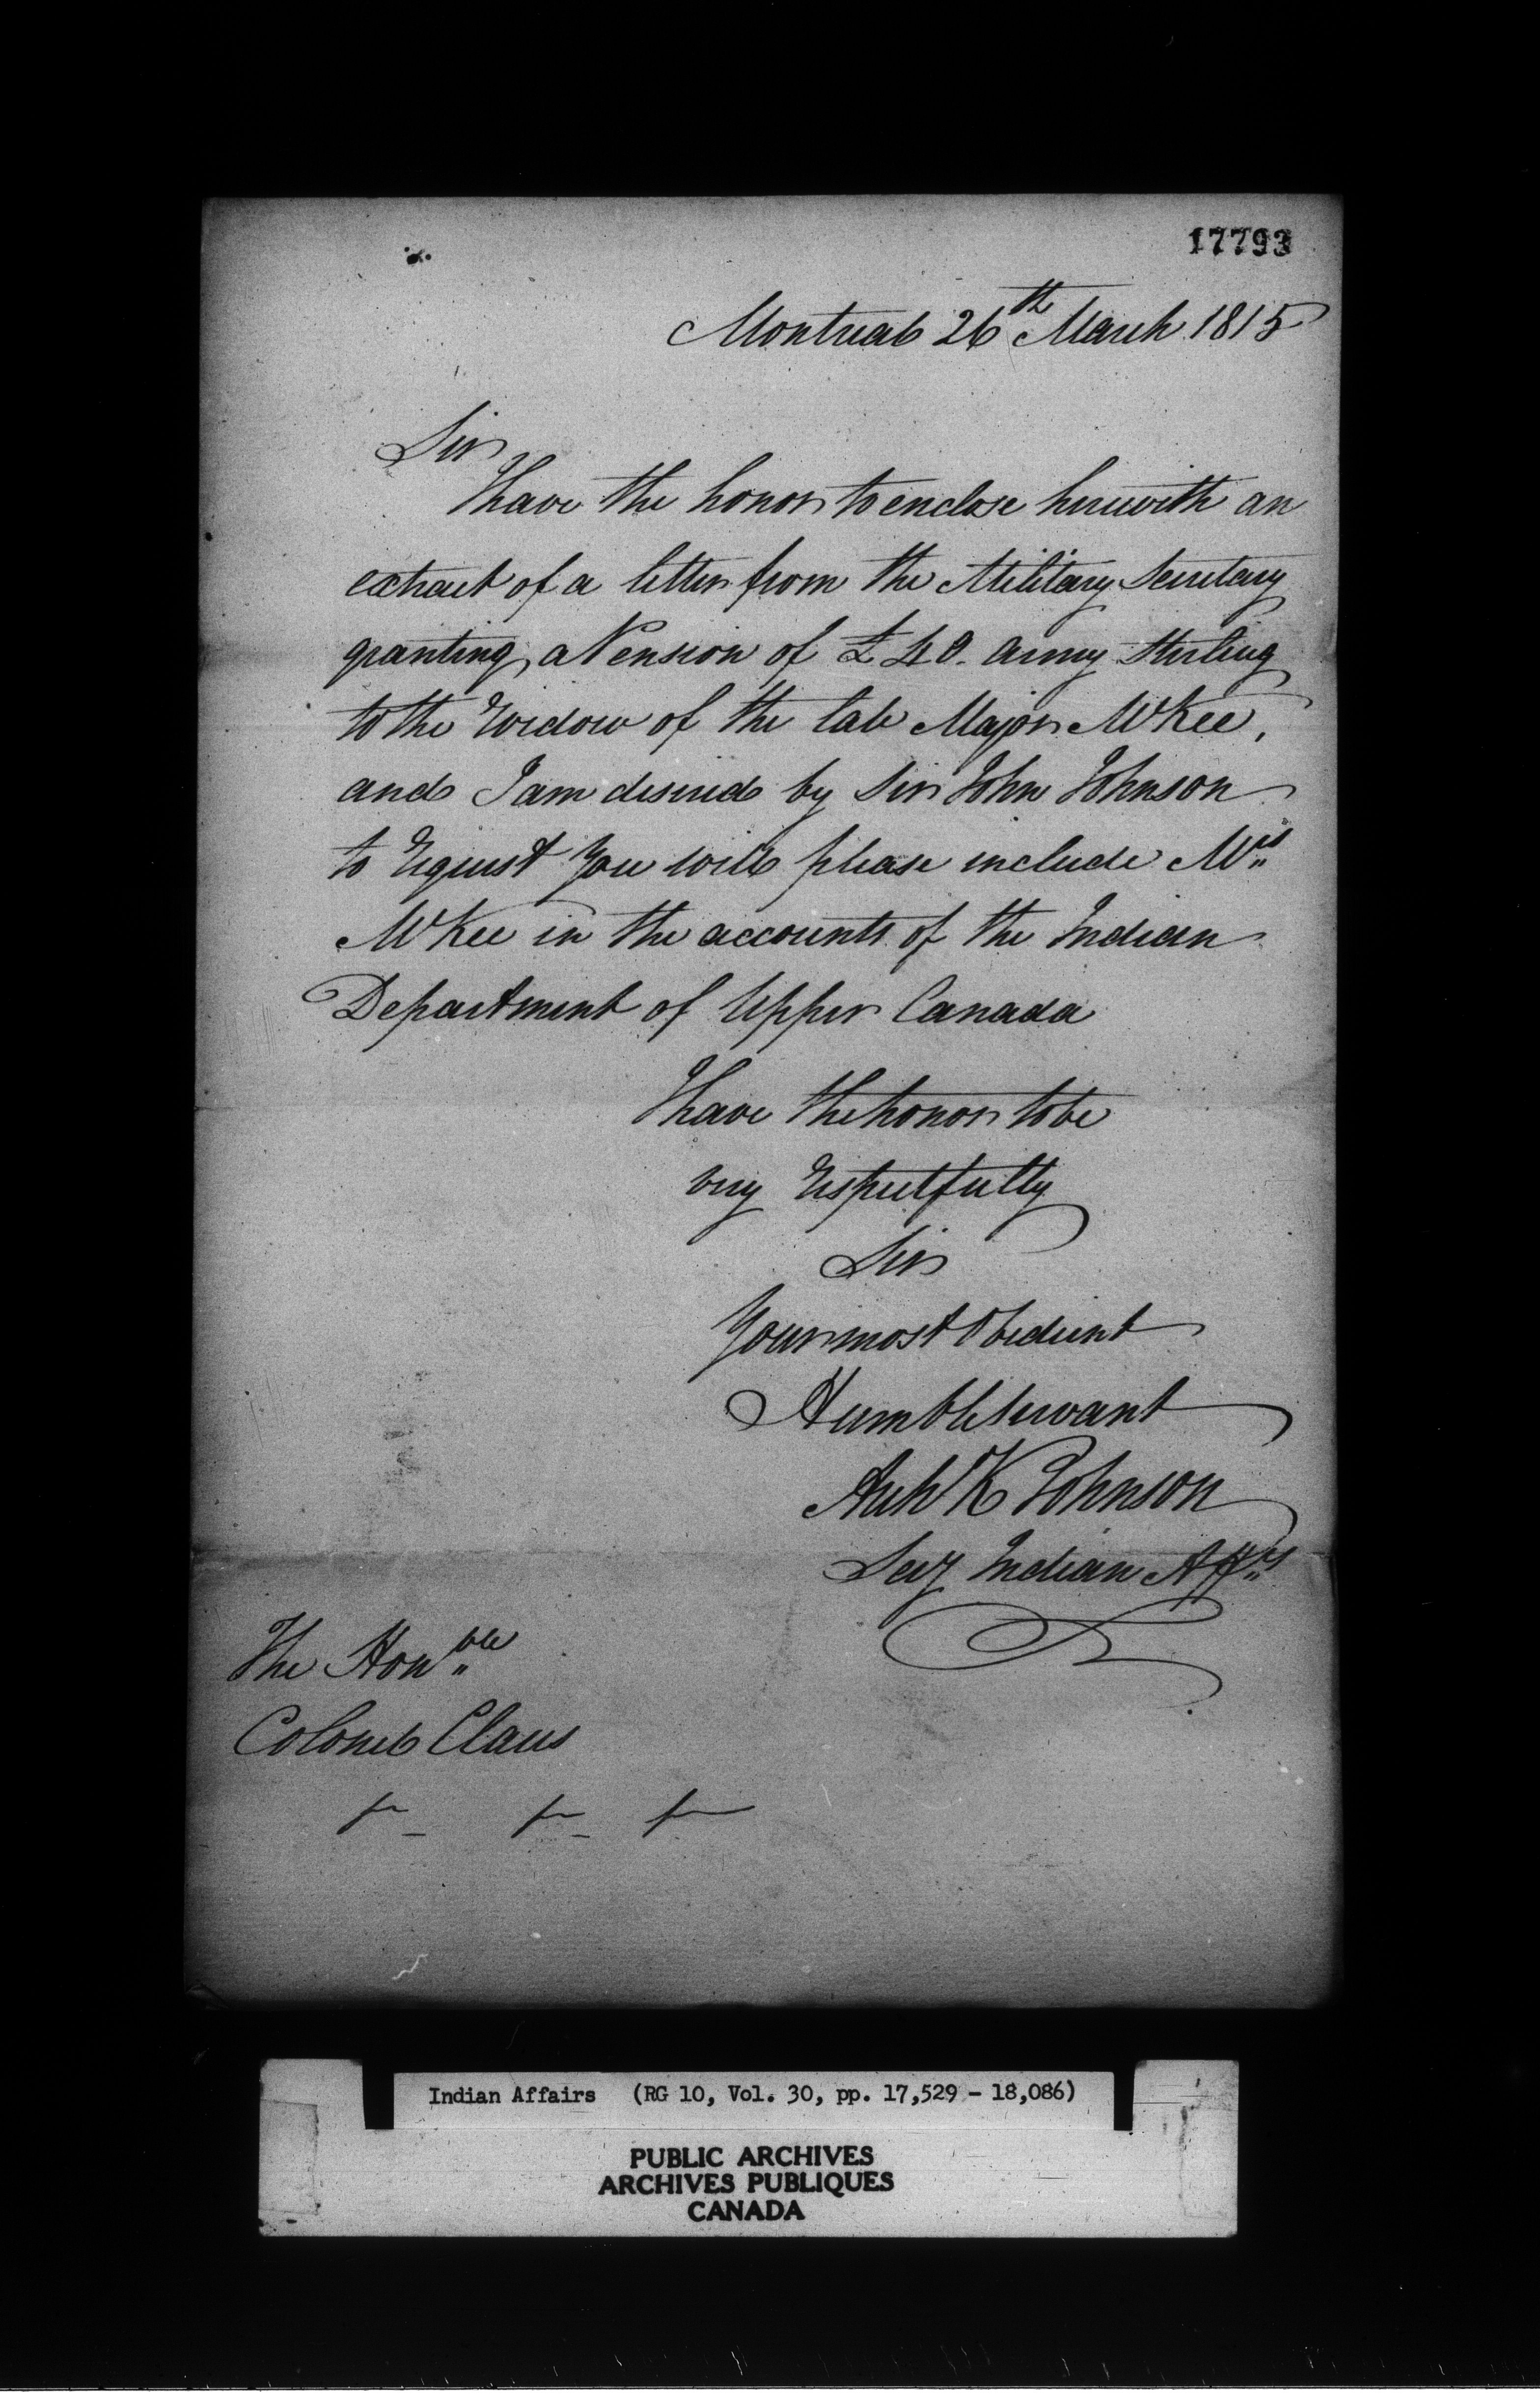 17793
Montreal 26th March 1815
Sir
I have the honor to enclose herewith an
extract of a letter from the Military Secretary
granting a Pension of £40. Army Sterling
to the Widow of the late Major McKee,
and I am desired by Sir John Johnson
to request you will please include Mrs
McKee in the accounts of the Indian
Department of Upper Canada
I have the honor to be
very respectfully
Sir
Your most Obedient
Humble servant
Arch K Johnson
Secy Indian Affrs
The Honble
Colonel Claus
Indian Affairs (RG 10, Vol. 30, pp. 17,529 - 18,086)
PUBLIC ARCHIVES
ARCHIVES PUBLIQUES
CANADA